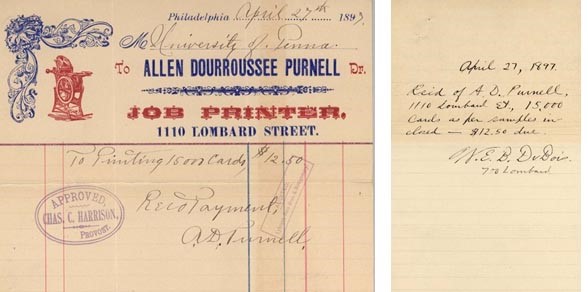 Philadelphia April 27th 1897
M University of Penna.
To ALLEN DOURROUSSEE PURNELL Dr.
JOB PRINTER,
1110 LOMBARD STREET.
To Printing 15000 Cards $12.50
APPROVED,
CHAS. C. HARRISON,
PROVOST.
Recd Payment,
A.D. Purnell
April 27, 1897.
Rec'd of A. D. Purnell,
1110 Lombard St, 15,000
Cards as per samples in
closed — $12.50 due.
W. E. B. DuBois
700 Lombard